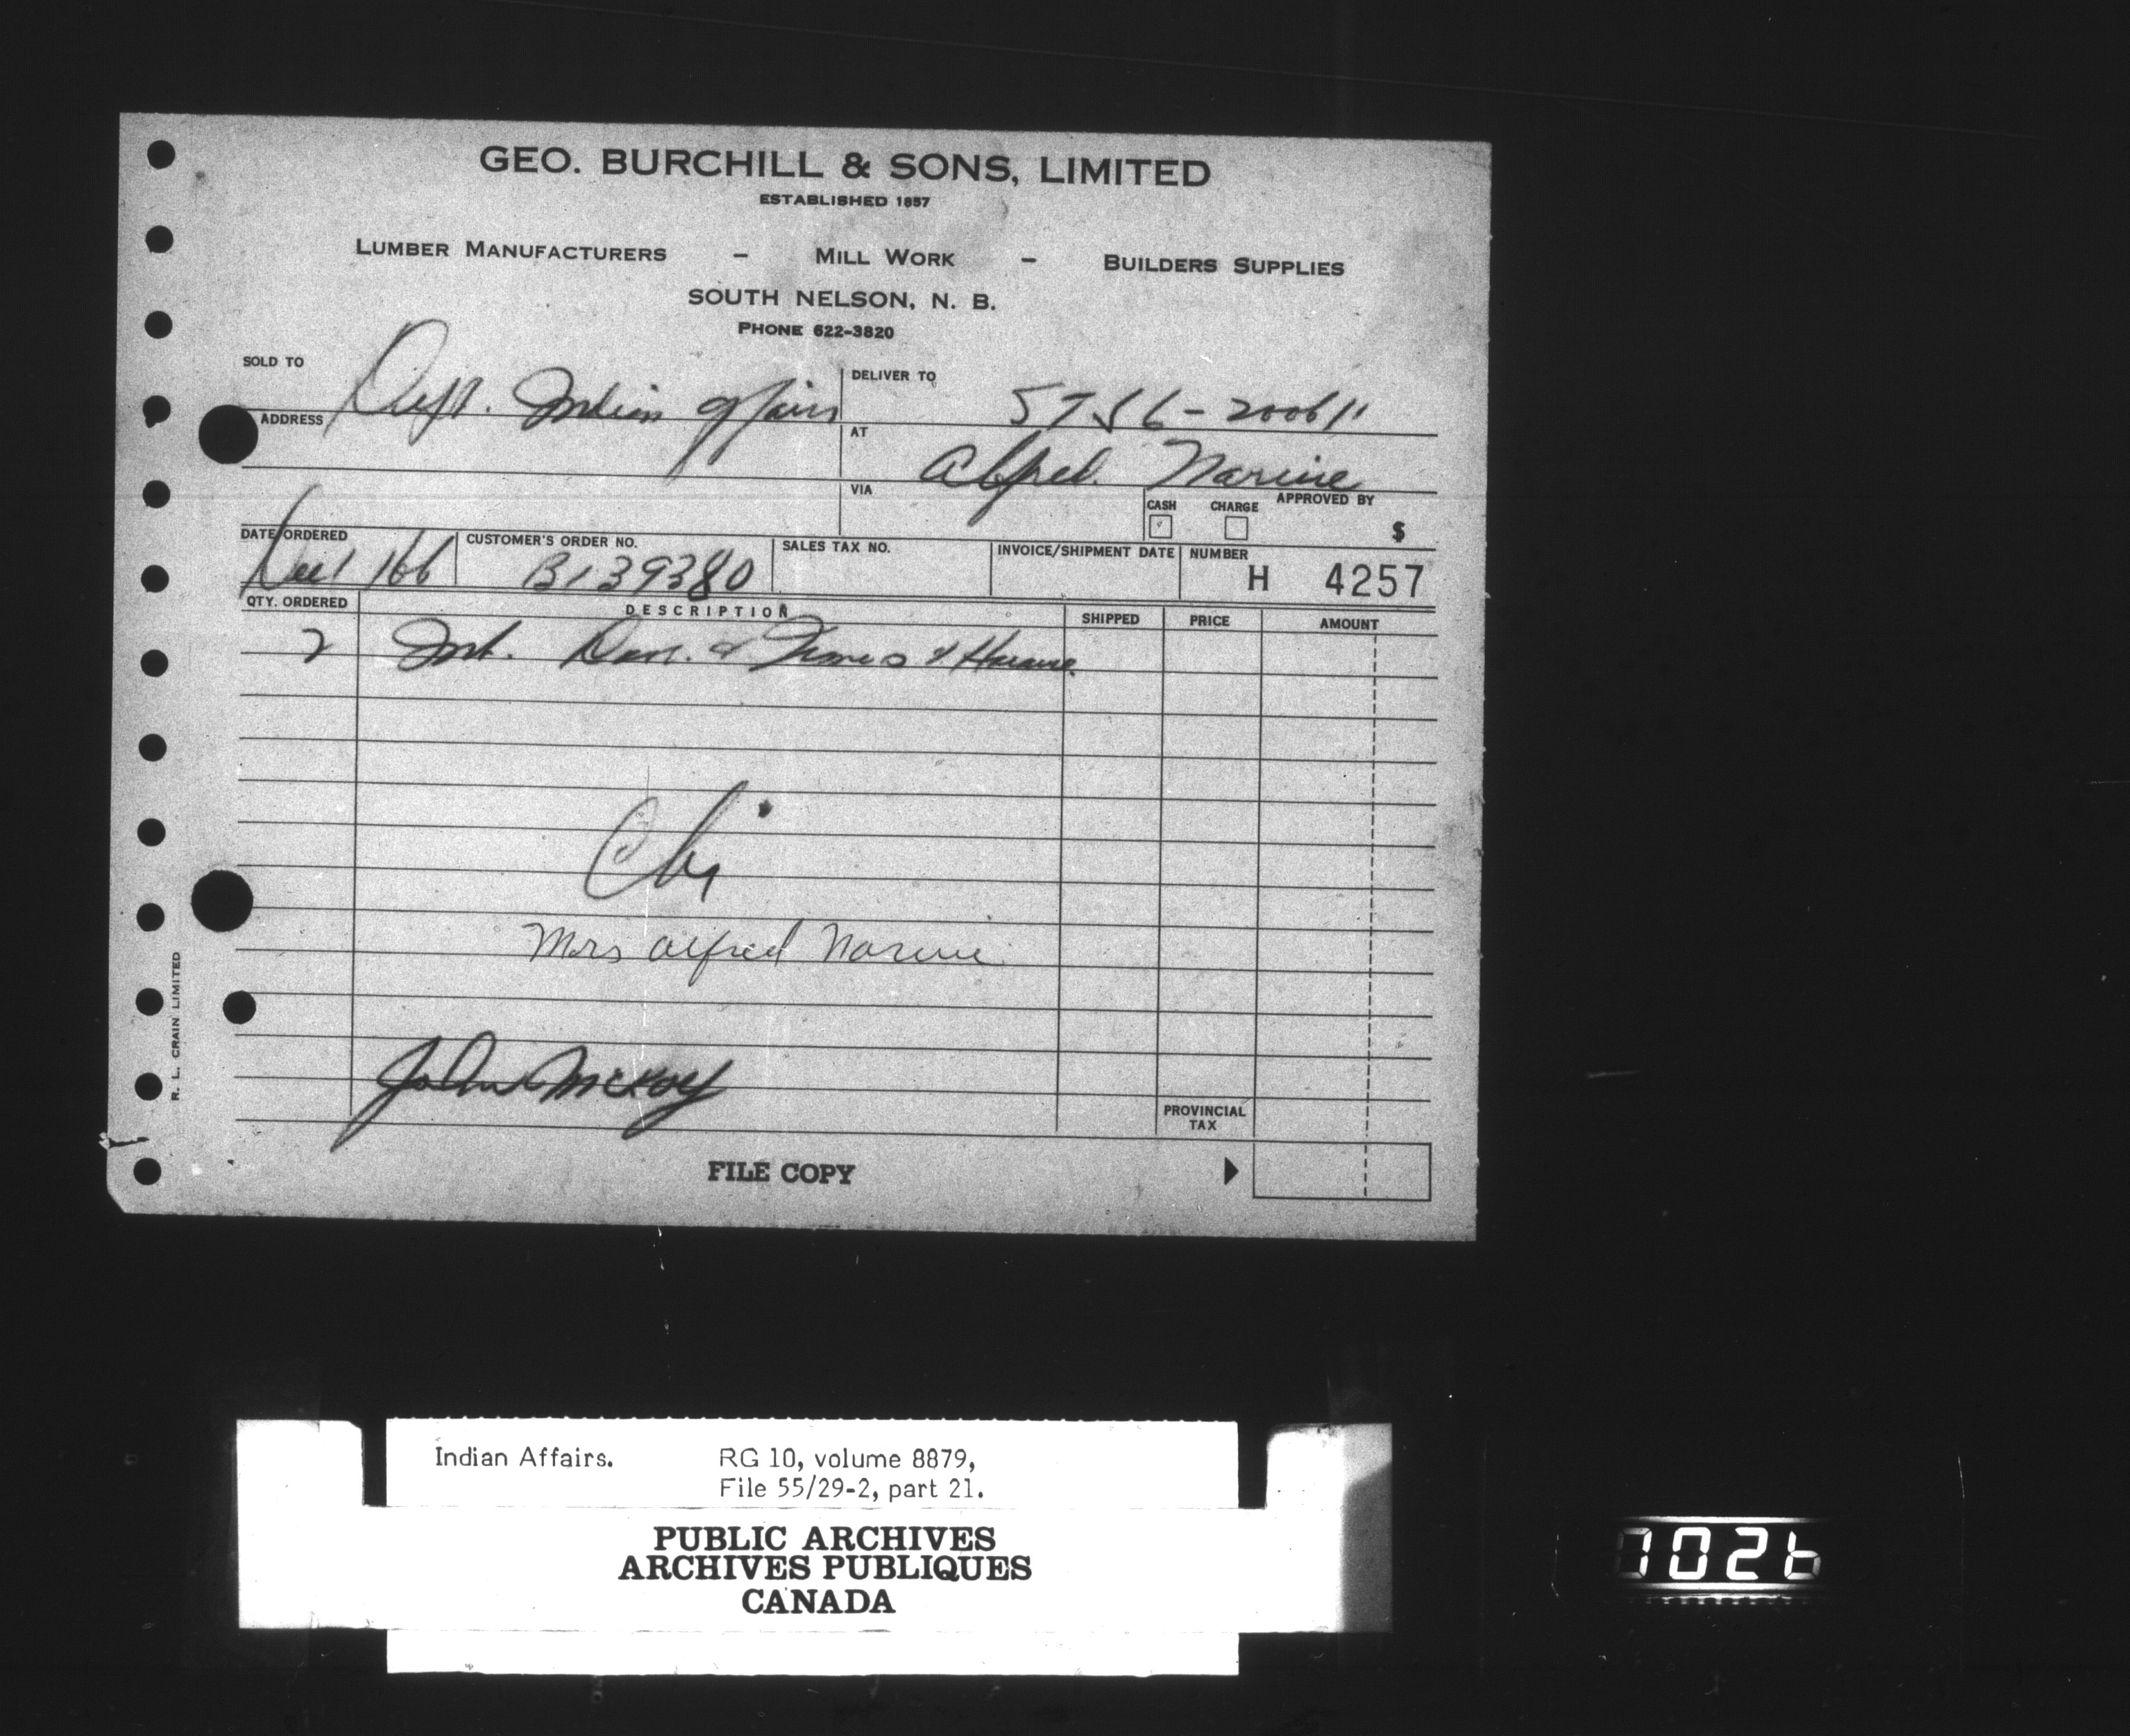 GEO. BURCHILL & SONS, LIMITED
ESTABLISHED 1857
LUMBER MANUFACTURERS – MILL WORK – BUILDERS SUPPLIES
SOUTH NELSON, N. B.
PHONE 622-3820
SOLD TO Dept. Indian Affairs
DELIVER TO
ADDRESS
AT Alfred Narvie
VIA
CASH CHARGE APPROVED BY
$
DATE ORDERED CUSTOMER'S ORDER NO. SALES TAX NO. INVOICE/SHIPMENT DATE NUMBER
Dec 1 /66 B139380 H 4257
QTY. ORDERED DESCRIPTION SHIPPED PRICE AMOUNT
2 Int. Doors & Frames &
Mrs Alfred Narvie
John McKay
PROVINCIAL TAX
FILE COPY
R. L. CRAIN LIMITED
Indian Affairs. RG 10, volume 8879,
File 55/29-2, part 21.
PUBLIC ARCHIVES
ARCHIVES PUBLIQUES
CANADA